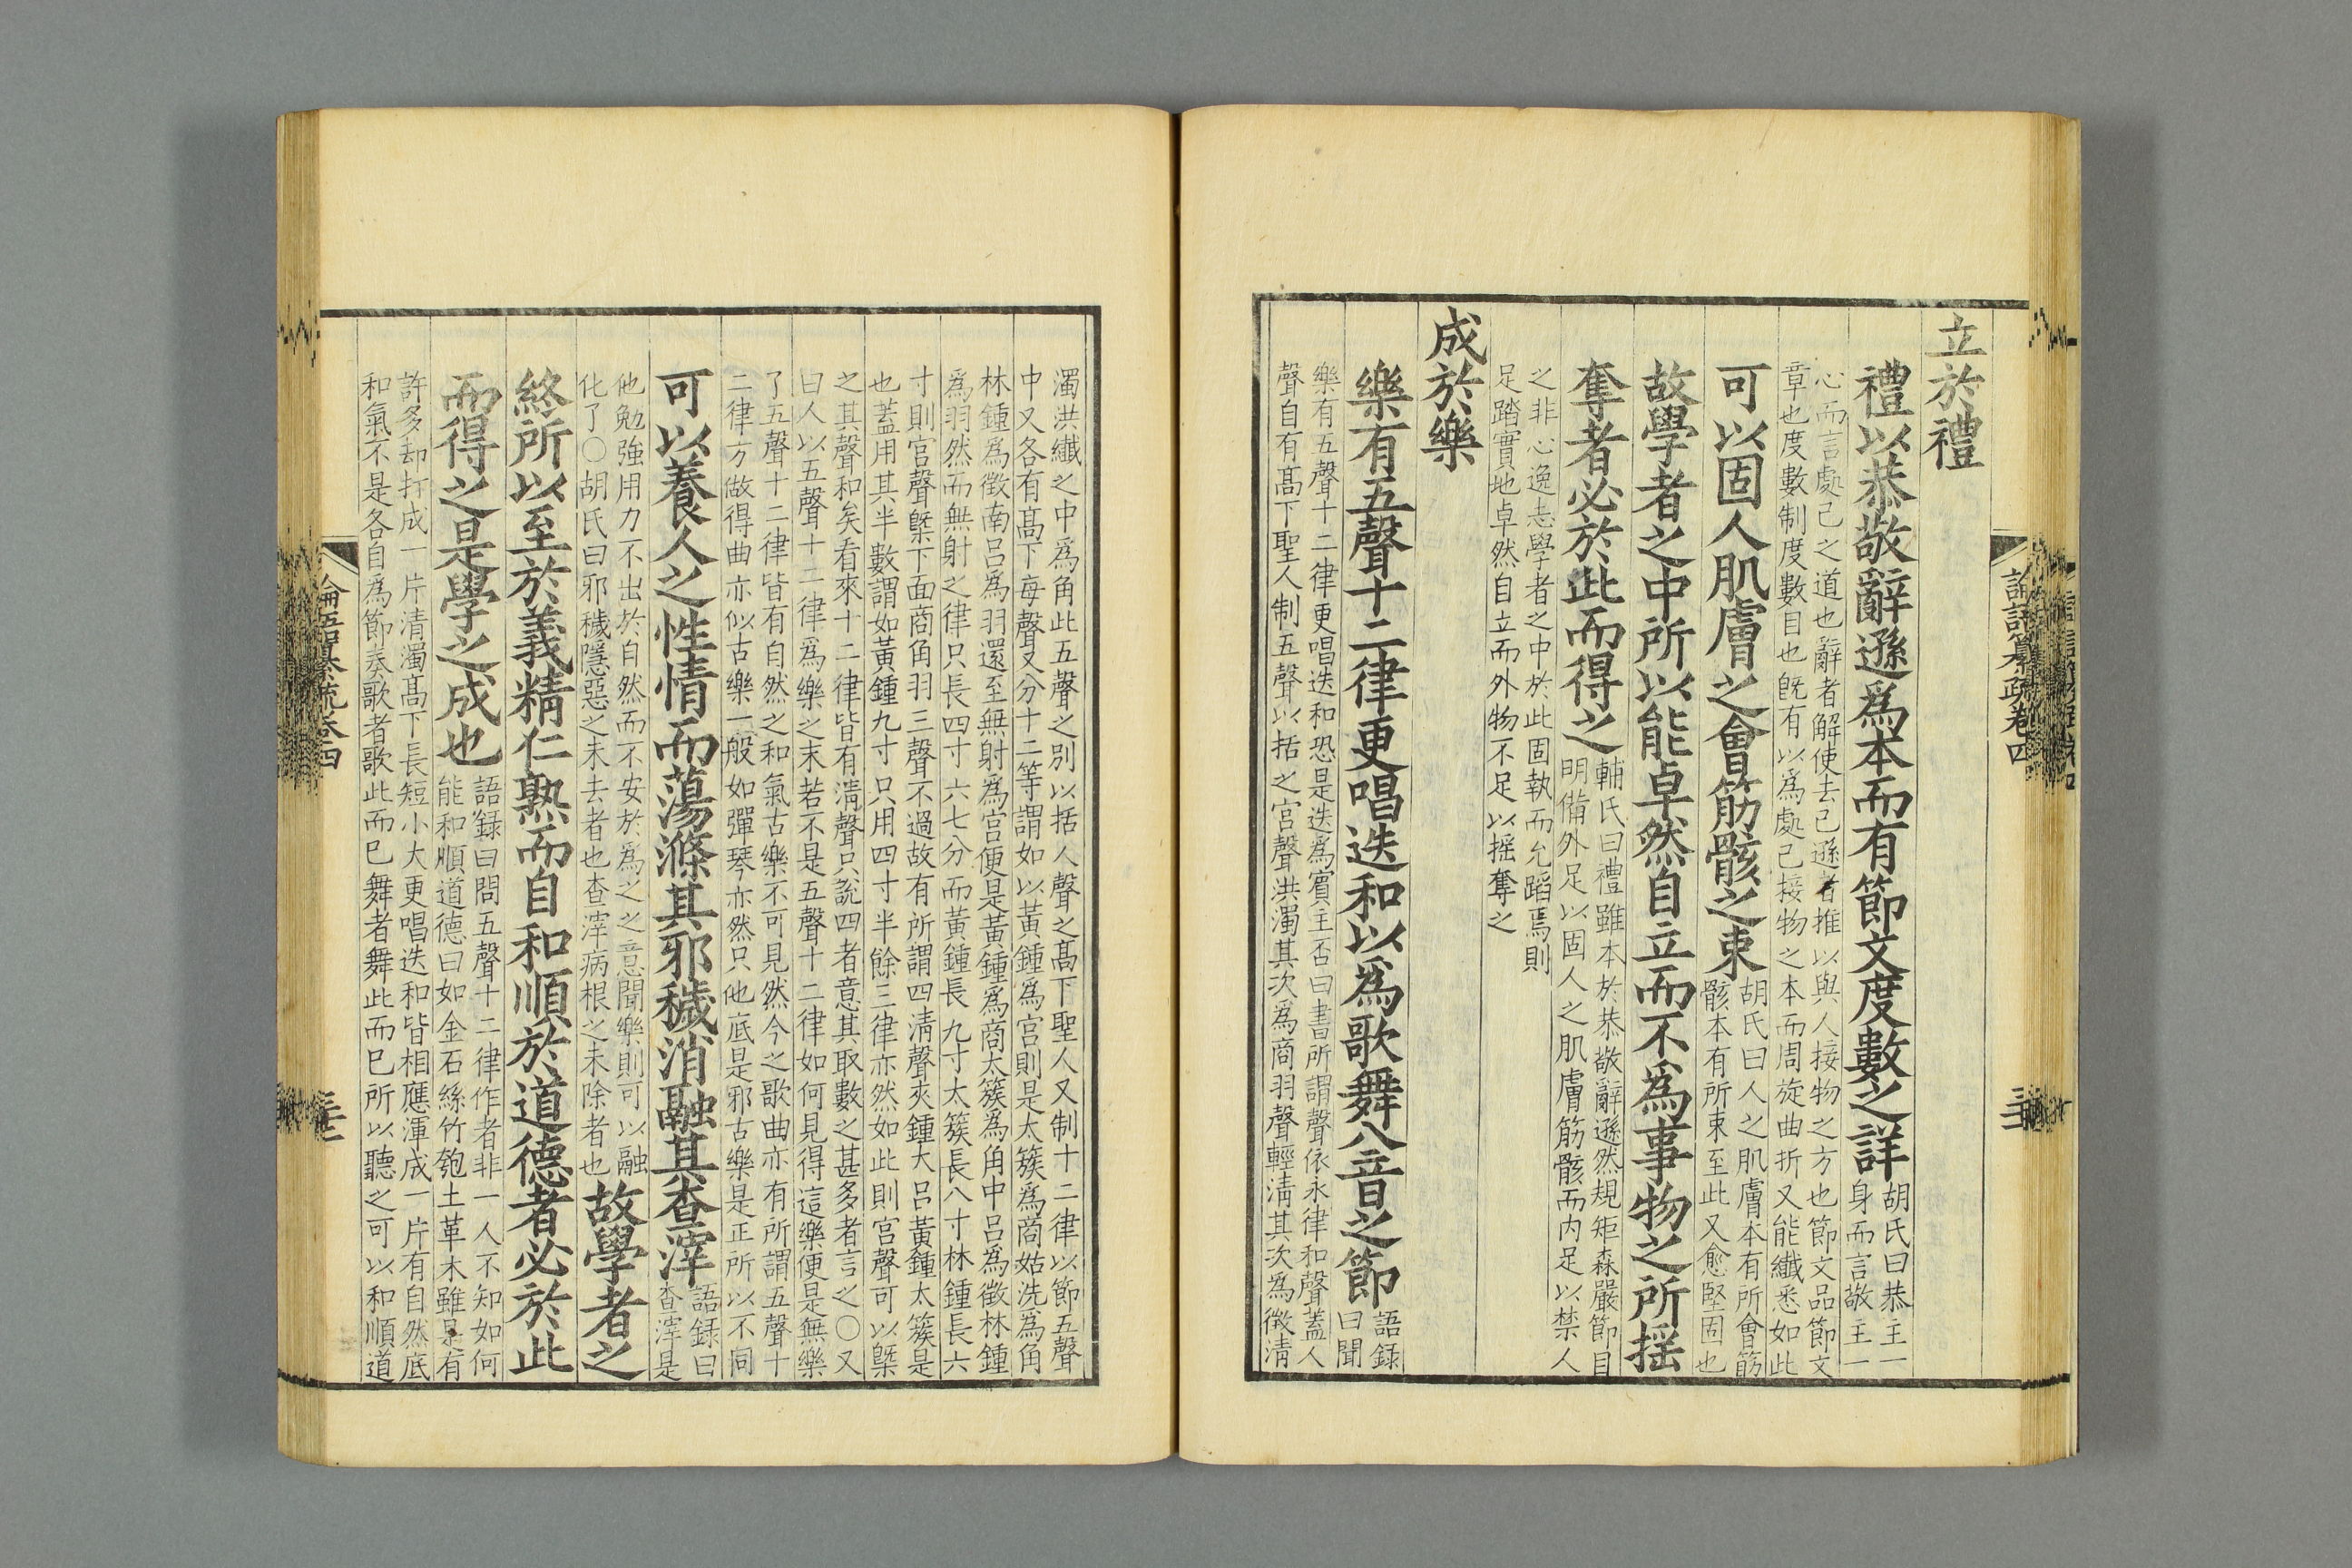 立於禮
禮以恭敬辭遜爲本而有節文度數之詳
胡氏曰恭主一
身而言敬主一
心而言處己之道也辭者解使去己遜者推以與人接物之方也節文品節文
章也度數制度數目也旣有以爲處己接物之本而周旋曲折又能纖悉如此
可以固人肌膚之會筋骸之束
胡氏曰人之肌膚本有所會筋
骸本有所束至此又愈堅固也
故學者之中所以能卓然自立而不爲事物之所揺
奪者必於此而得之
輔氏曰禮雖本於恭敬辭遜然規矩森嚴節目
明備外足以固人之肌膚筋骸而内足以禁人
之非心逸志學者之中於此固執而允蹈焉則
足踏實地卓然自立而外物不足以揺奪之
成於樂
樂有五聲十二律更唱迭和以爲歌舞八音之節
語録
曰聞
樂有五聲十二律更唱迭和恐是迭爲賓主否曰書所謂聲依永律和聲蓋人
聲自有髙下聖人制五聲以括之宫聲洪濁其次爲商羽聲輕清其次爲徵清
濁洪纖之中爲角此五聲之別以括人聲之髙下聖人又制十二律以節五聲
中又各有髙下每聲又分十二等謂如以黃鍾爲宫則是太簇爲商姑洗爲角
林鍾爲徵南吕爲羽還至無射爲宫便是黃鍾爲商太簇爲角中吕爲徵林鍾
爲羽然而無射之律只長四寸六七分而黃鍾長九寸太簇長八寸林鍾長六
寸則宫聲槩下面商角羽三聲不過故有所謂四清聲夾鍾大吕黃鍾太簇是
也蓋用其半數謂如黃鍾九寸只用四寸半餘三律亦然如此則宫聲可以槩
之其聲和矣看來十二律皆有清聲只說四者意其取數之甚多者言之○又
曰人以五聲十二律爲樂之末若不是五聲十二律如何見得這樂便是無樂
了五聲十二律皆有自然之和氣古樂不可見然今之歌曲亦有所謂五聲十
二律方做得曲亦似古樂一般如彈琴亦然只他底是邪古樂是正所以不同
可以養人之性情而蕩滌其邪穢消融其查滓
語録曰
查滓是
他勉強用力不出於自然而不安於爲之之意聞樂則可以融
化了○胡氏曰邪穢隱惡之未去者也查滓病根之未除者也
故學者之
終所以至於義精仁熟而自和順於道德者必於此
而得之是學之成也
語録曰問五聲十二律作者非一人不知如何
能和順道德曰如金石絲竹匏土革木雖是有
許多却打成一片清濁髙下長短小大更唱迭和皆相應渾成一片有自然底
和氣不是各自爲節奏歌者歌此而已舞者舞此而已所以聽之可以和順道
論語纂疏卷四